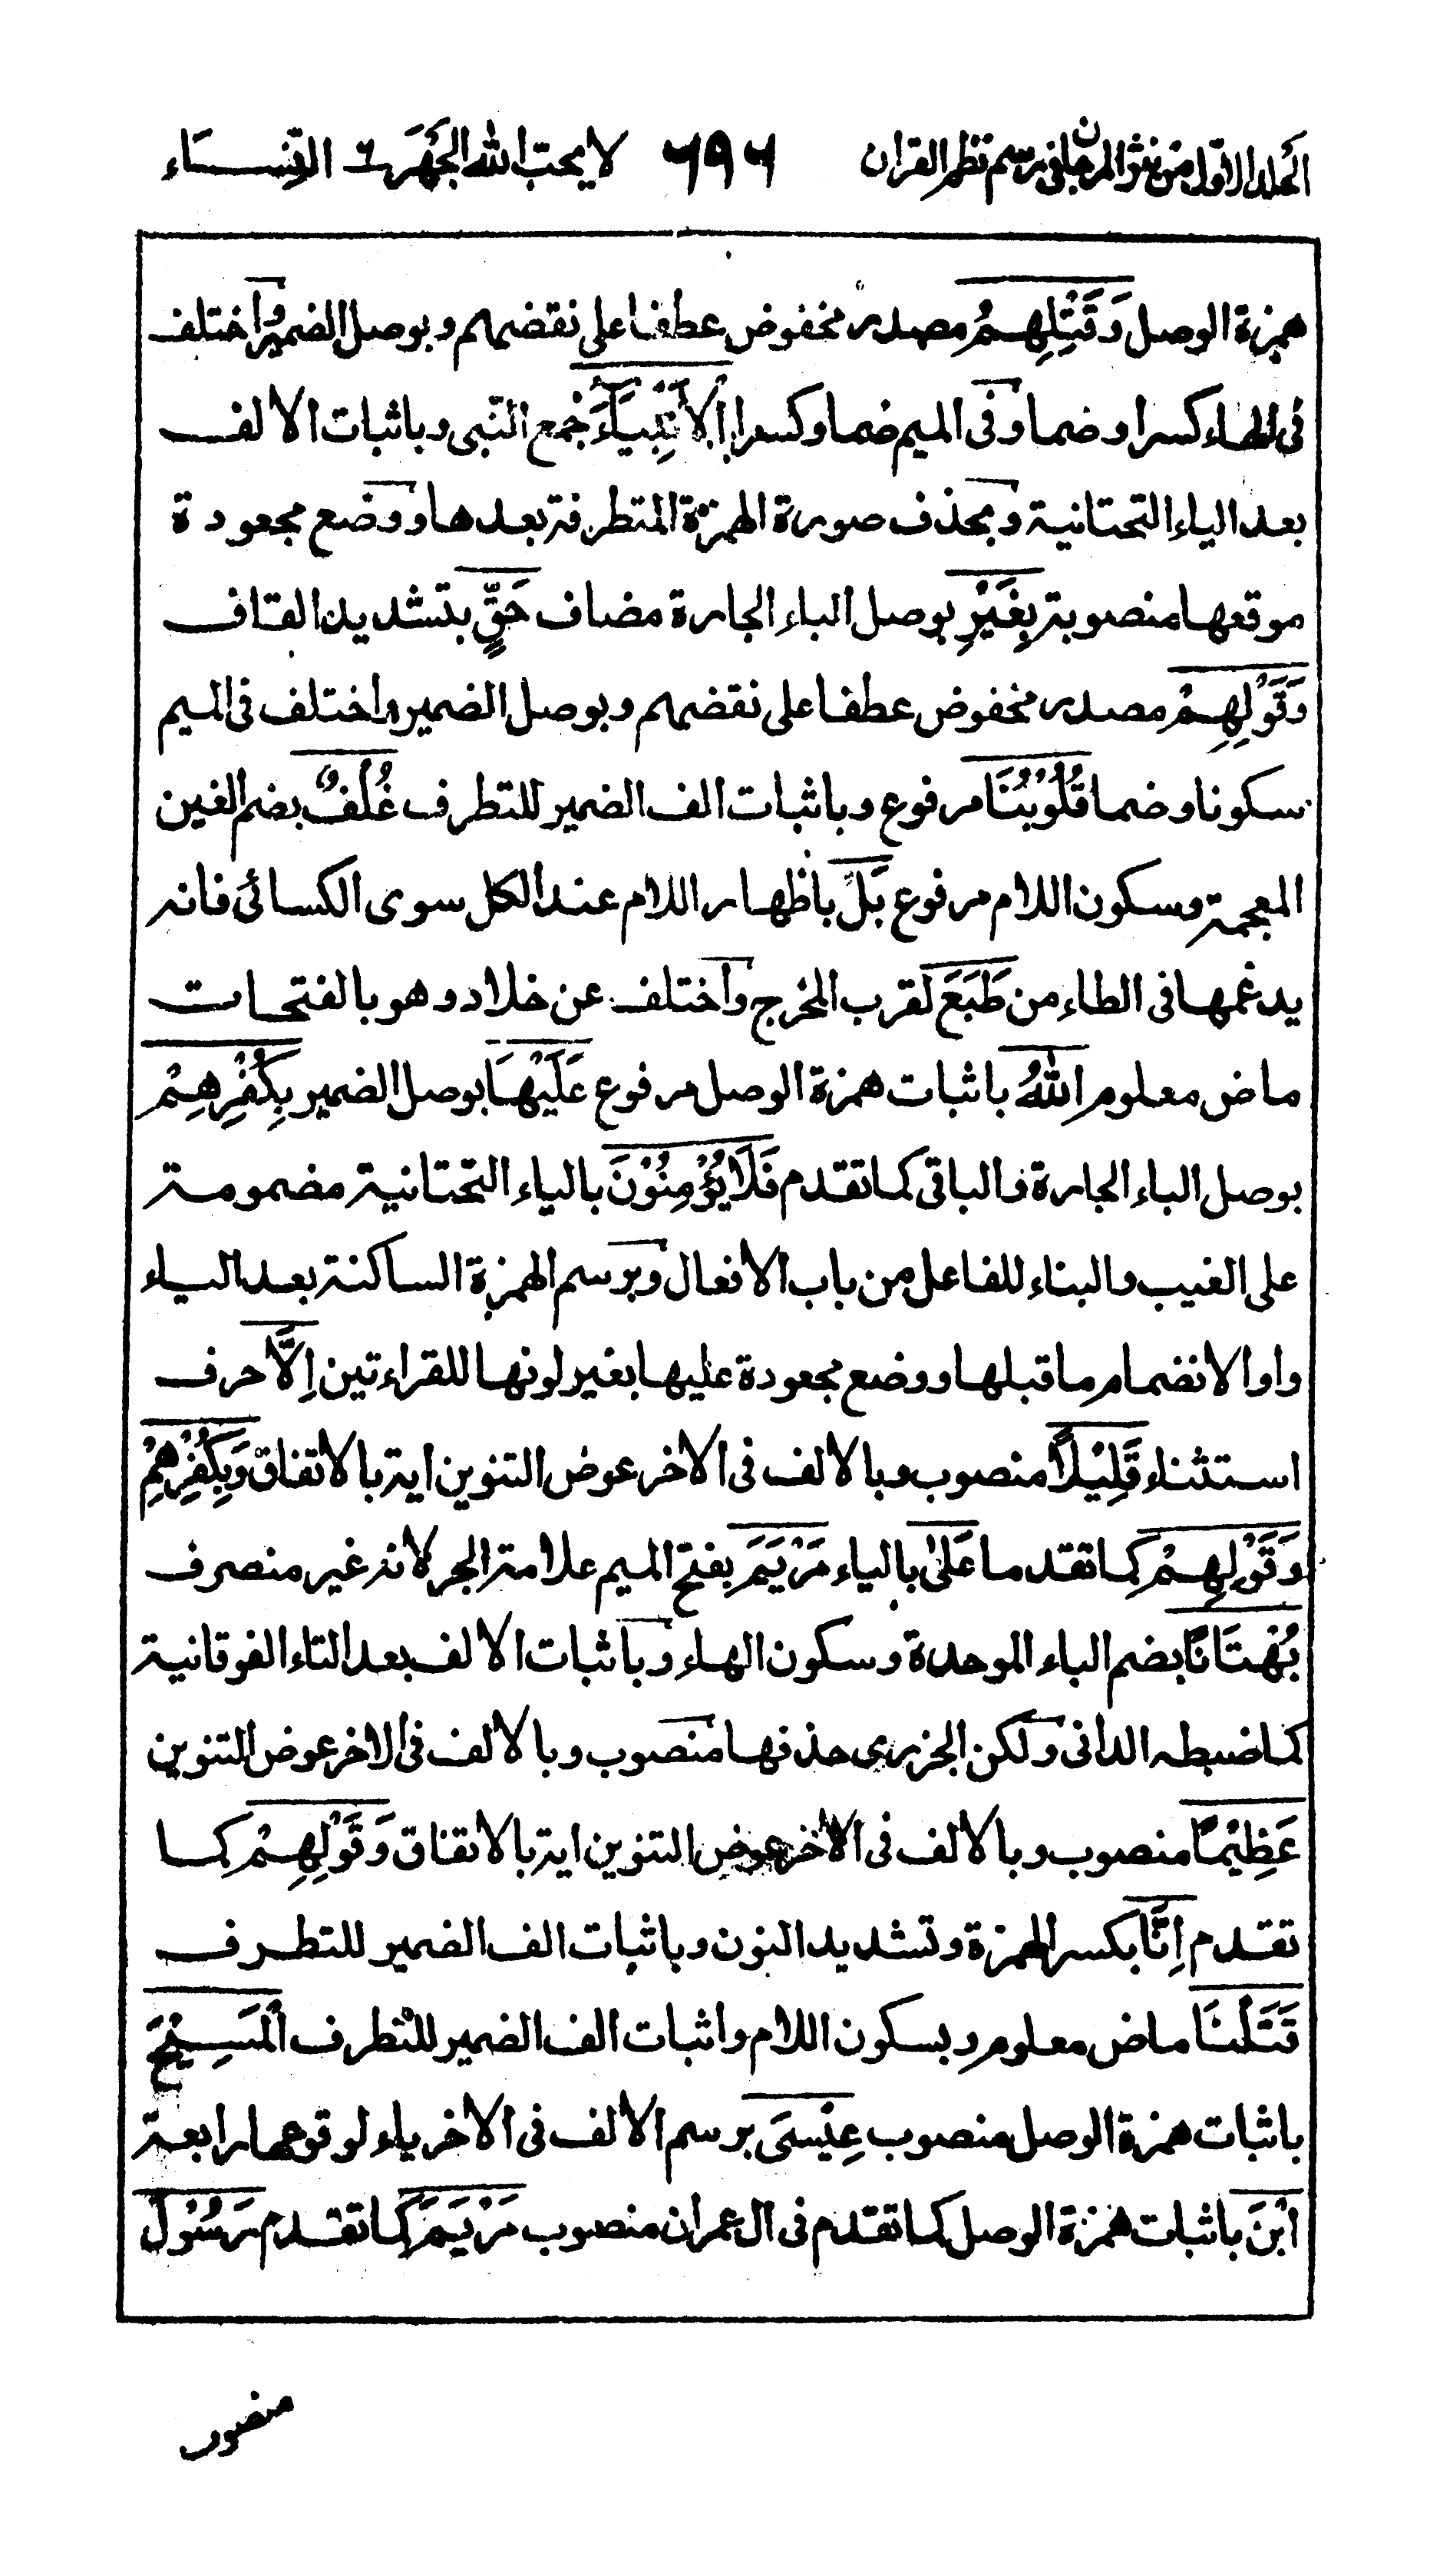 الجلد الاول من نثر المرجان في رسم نظم القران ٦٩٦ لا يحب الله الجهر ٦ النساء
همزة الوصل وَقَتْلِهِمُ مصدر مخفوض عطفا على نقضهم و بوصل الضمير واختلف
فى الهاء كسرا و ضما و فى الميم ضما و كسرا اَلْاَنْۢبِيَآءَ جمع النّبى و باثبات الالف
بعد الياء التحتانية و بحذف صورة الهمزة المتطرفة بعدها و وضع مجعودة
موقعها منصوبة بِغَيْرِ بوصل الباء الجارة مضاف حَقٍّ بتشديد القاف
وَقَوْلِهِمْ مصدر مخفوض عطفا على نقضهم و بوصل الضمير واختلف فى الميم
سكونا و ضما قُلُوْبُنَا مرفوع و باثبات الف الضمير للتطرف غُلْفٌ بضم الغين
المعجمة و سكون اللام مرفوع بَلْ باظهار اللام عند الكل سوى الكسائى فانه
يدغمها فى الطاء من طَبَعَ لقرب المخرج واختلف عن خلاد و هو بالفتحات
ماض معلوم اللّٰهُ باثبات همزة الوصل مرفوع عَلَيْهَا بوصل الضمير بِكُفْرِهِمْ
بوصل الباء الجارة و الباقى كما تقدم فَلَا يُؤْمِنُوْنَ بالياء التحتانية مضمومة
على الغيب والبناء للفاعل من باب الافعال و برسم الهمزة الساكنة بعد الياء
واوا لانضمام ما قبلها و وضع مجعودة عليها بغير لونها للقراءتين اِلَّا حرف
استثناء قَلِيْلًا منصوب و بالالف فى الاخر عوض التنوين اية بالاتفاق وَبِكُفْرِهِمْ
وَقَوْلِهِمْ كما تقدما عَلٰى بالياء مَرْيَمَ بفتح الميم علامة الجر لانه غير منصرف
بُهْتَانًا بضم الباء الموحدة و سكون الهاء و باثبات الالف بعد التاء الفوقانية
كما ضبطه الدانى ولكن الجزرى حذفها منصوب و بالالف فى الاخر عوض التنوين
عَظِيْمًا منصوب و بالالف فى الاخر عوض التنوين اية بالاتفاق وَقَوْلِهِمْ كما
تقدم اِنَّا بكسر الهمزة و تشديد النون و باثبات الف الضمير للتطرف
قَتَلْنَا ماض معلوم و بسكون اللام و اثبات الف الضمير للتطرف الْمَسِيْحَ
باثبات همزة الوصل منصوب عِيْسَى برسم الالف فى الاخر ياء لوقوعها رابعة
ابْنَ باثبات همزة الوصل كما تقدم فى ال عمران منصوب مَرْيَمَ كما تقدم رَسُوْلَ
منصوب